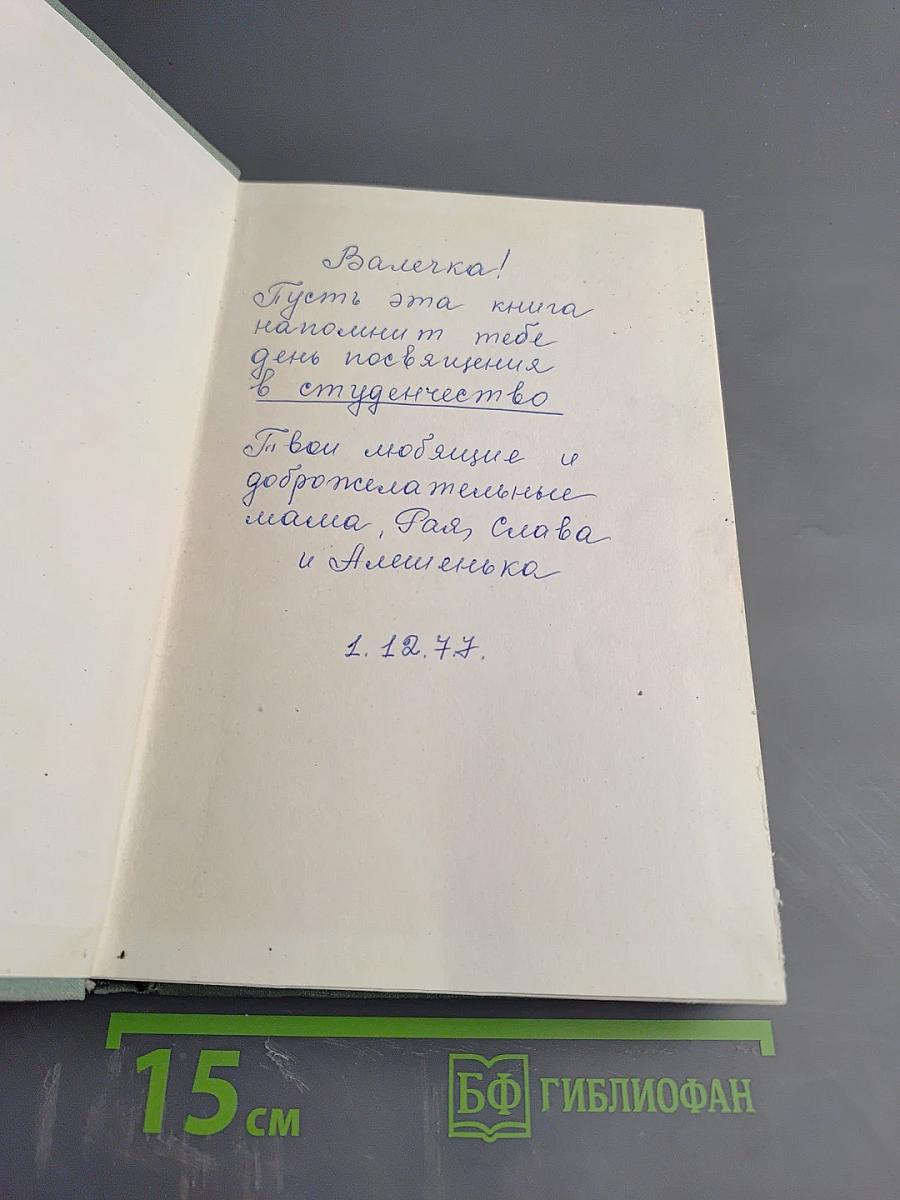 Валечка!
Пусть эта книга
напомнит тебе
день посвящения
в студенчество
Твои любящие и
доброжелательные
мама, Рая, Слава
и Алешенька
1.12.77.
15 см
БФ ГИБЛИОФАН